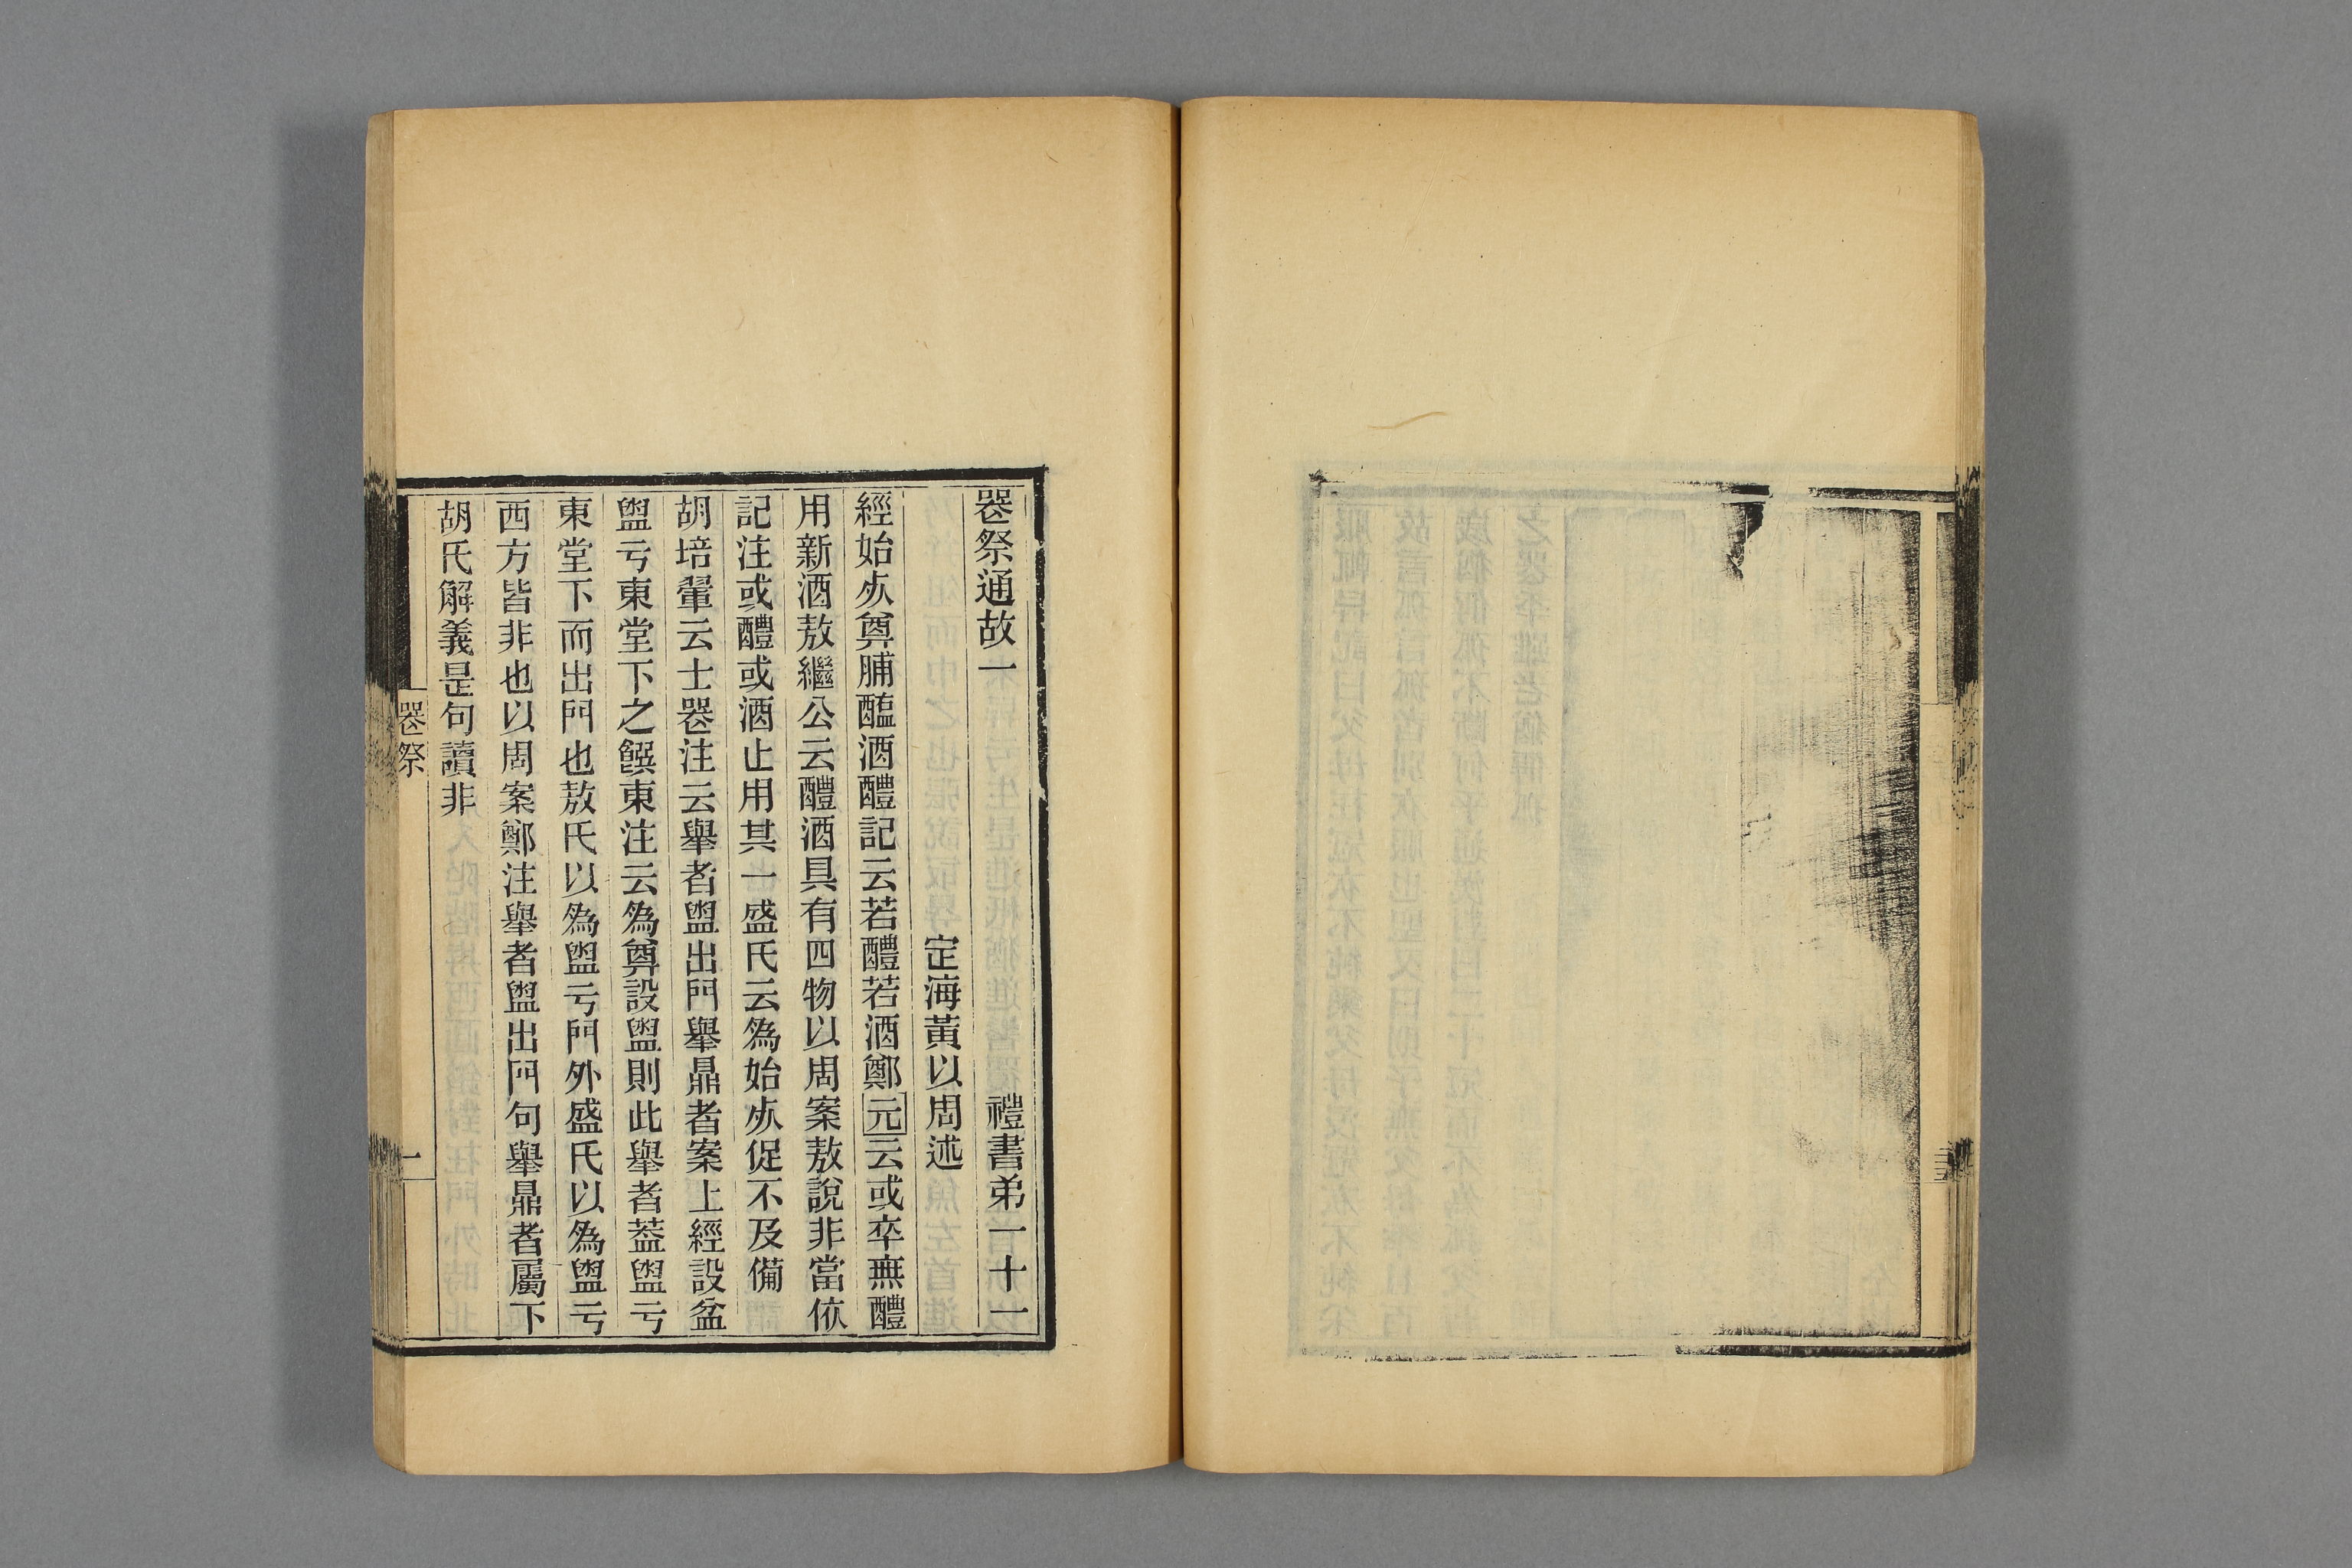 喪祭通故一
禮書弟一十一
定海黃以周述
經始𣦸奠脯醢酒醴記云若醴若酒鄭元云或卒無醴
用新酒敖繼公云醴酒具有四物以周案敖說非當依
記注或醴或酒止用其一盛氏云為始𣦸促不及備
胡培翬云士喪注云舉者盥出門舉鼎者案上經設盆
盥亏東堂下之饌東注云為奠設盥則此舉者葢盥亏
東堂下而出門也敖氏以為盥亏門外盛氏以為盥亏
西方皆非也以周案鄭注舉者盥出門句舉鼎者屬下
胡氏解義是句讀非
喪祭
一